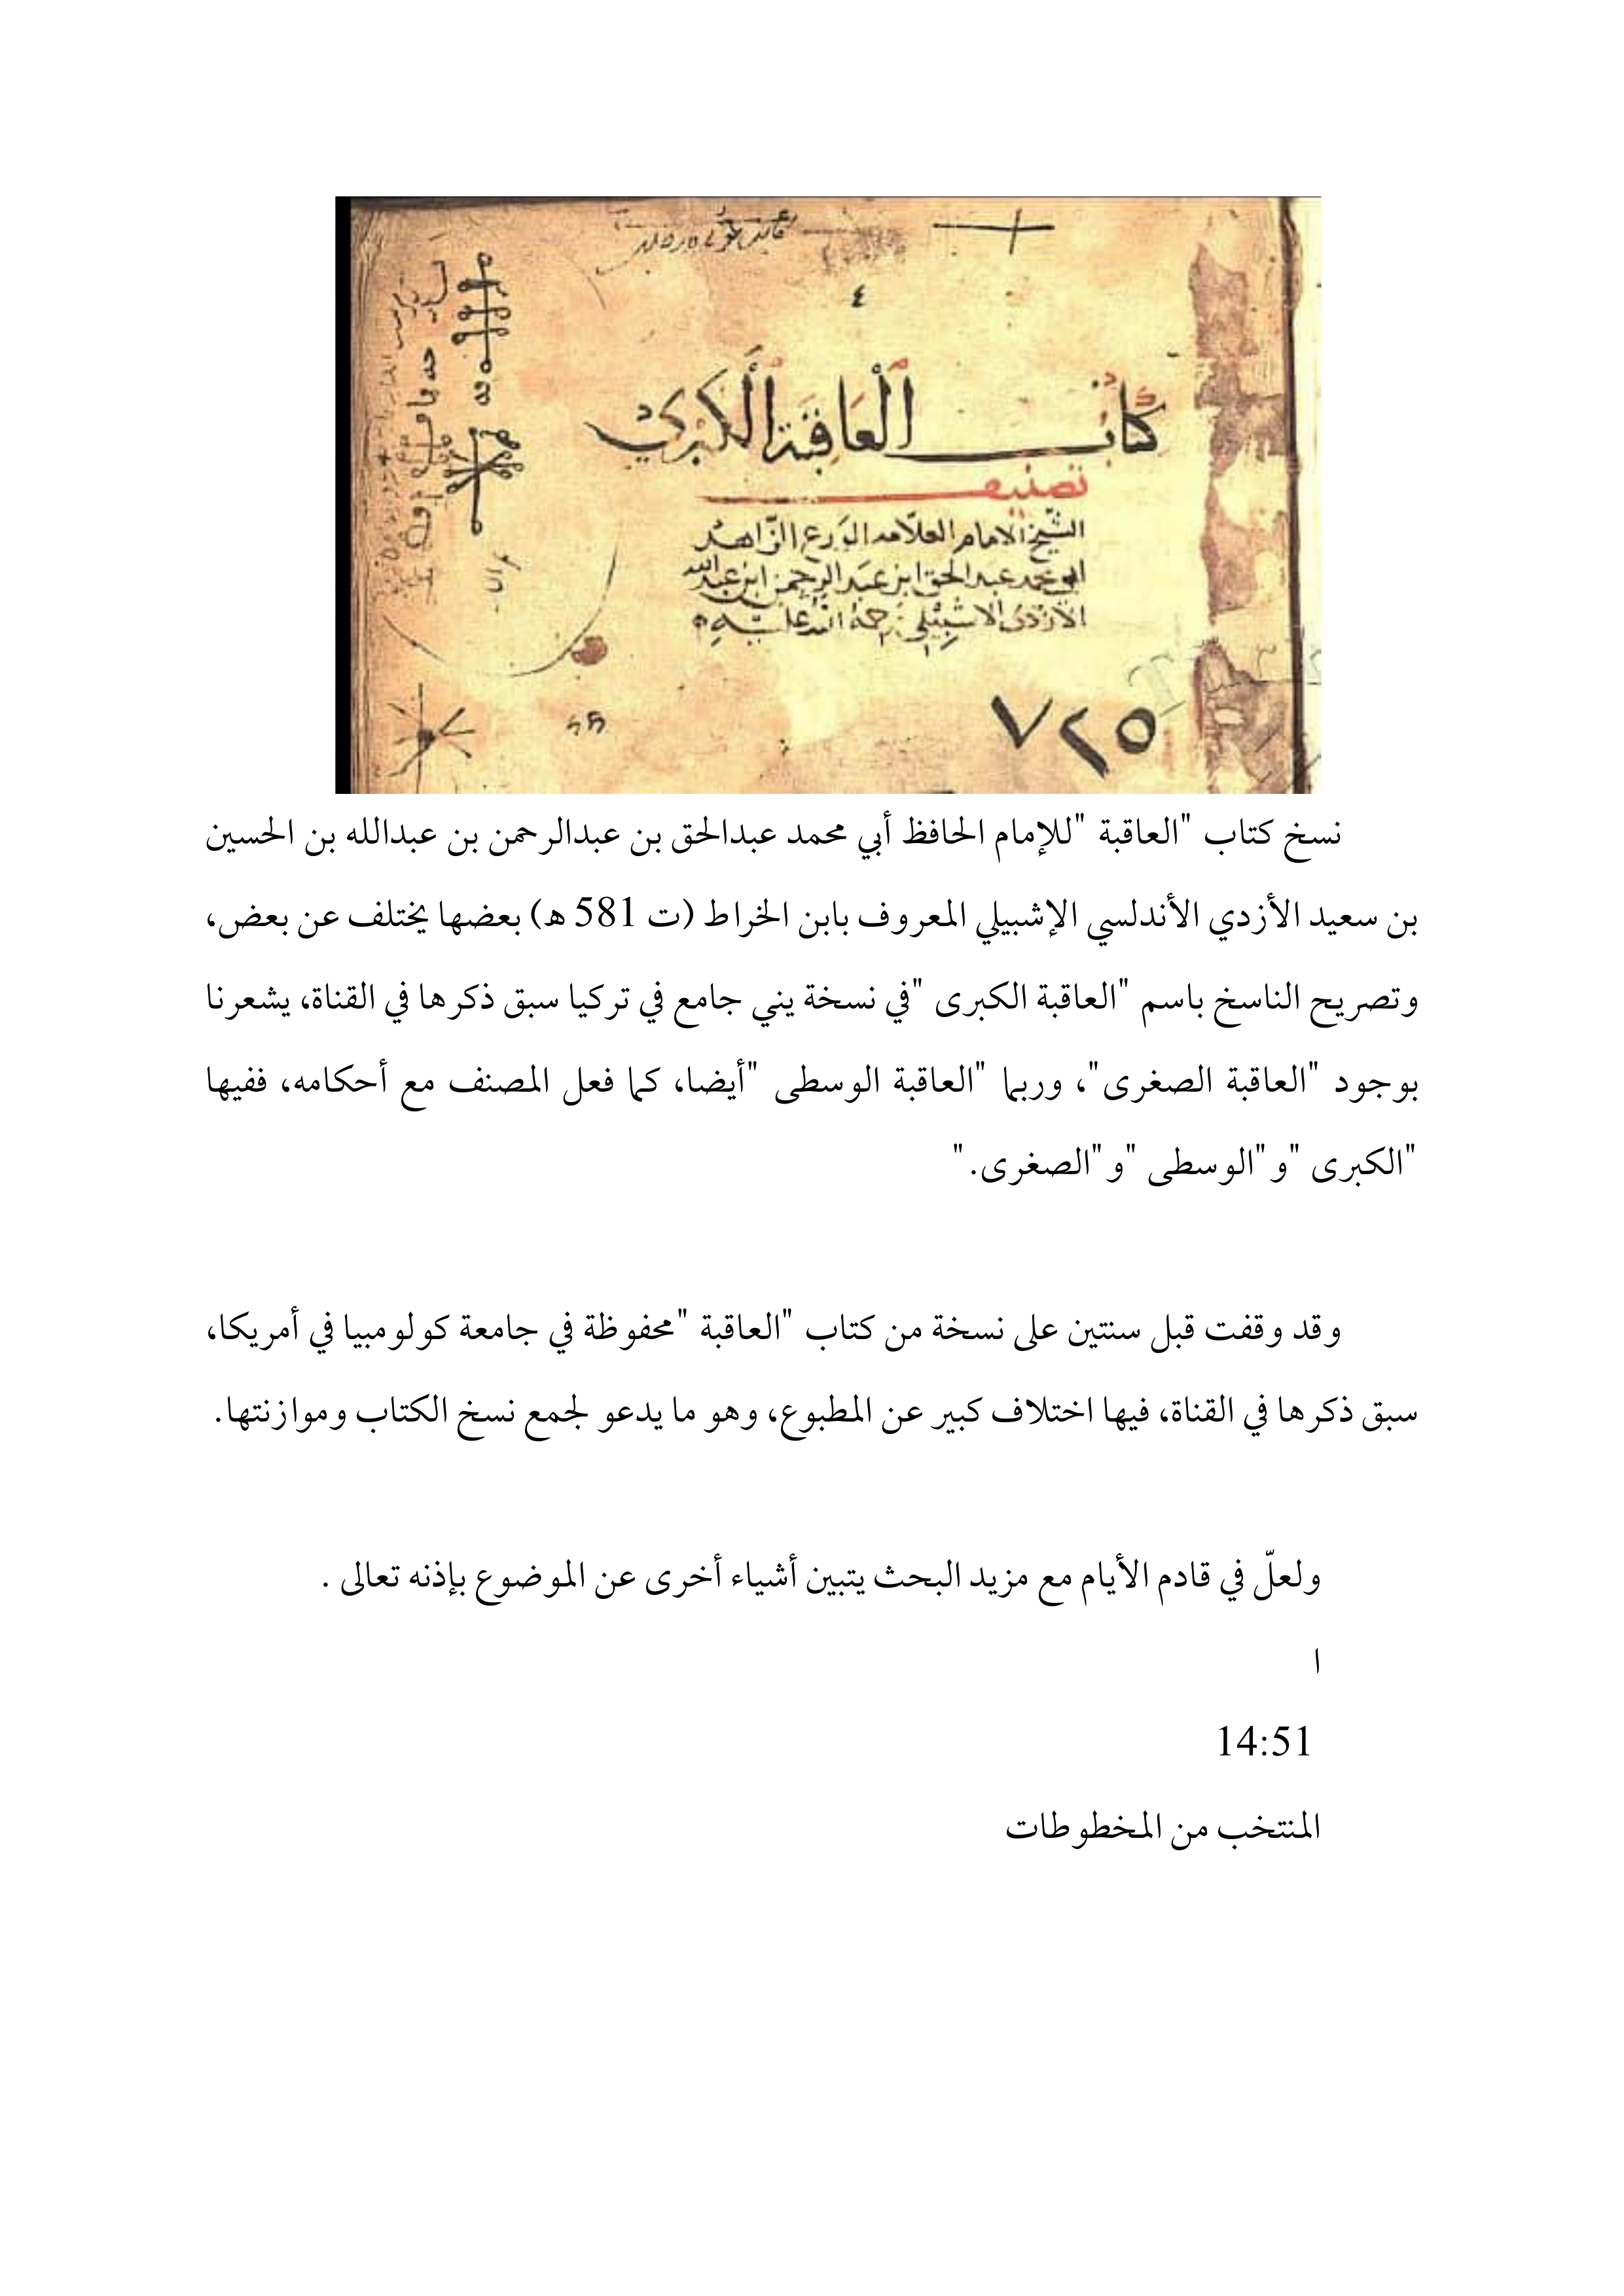 ٤
كتاب العاقبة الكبرى
تصنيف
الشيخ الامام العلامه الورع الزاهد
ابي محمد عبد الحق ابن عبد الرحمن ابن عبد الله
الازدى الاشبيلي رحمة الله عليه
٧٢٥
نسخ كتاب "العاقبة "للإمام الحافظ أبي محمد عبدالحق بن عبدالرحمن بن عبدالله بن الحسين
بن سعيد الأزدي الأندلسي الإشبيلي المعروف بابن الخراط (ت 581 ه) بعضها يختلف عن بعض،
وتصريح الناسخ باسم "العاقبة الكبرى "في نسخة يني جامع في تركيا سبق ذكرها في القناة، يشعرنا
بوجود "العاقبة الصغرى"، وربما "العاقبة الوسطى "أيضا، كما فعل المصنف مع أحكامه، ففيها
"الكبرى "و"الوسطى "و"الصغرى."
وقد وقفت قبل سنتين على نسخة من كتاب "العاقبة "محفوظة في جامعة كولومبيا في أمريكا،
سبق ذكرها في القناة، فيها اختلاف كبير عن المطبوع، وهو ما يدعو لجمع نسخ الكتاب وموازنتها.
ولعلّ في قادم الأيام مع مزيد البحث يتبين أشياء أخرى عن الموضوع بإذنه تعالى .
ا
14:51
المنتخب من المخطوطات